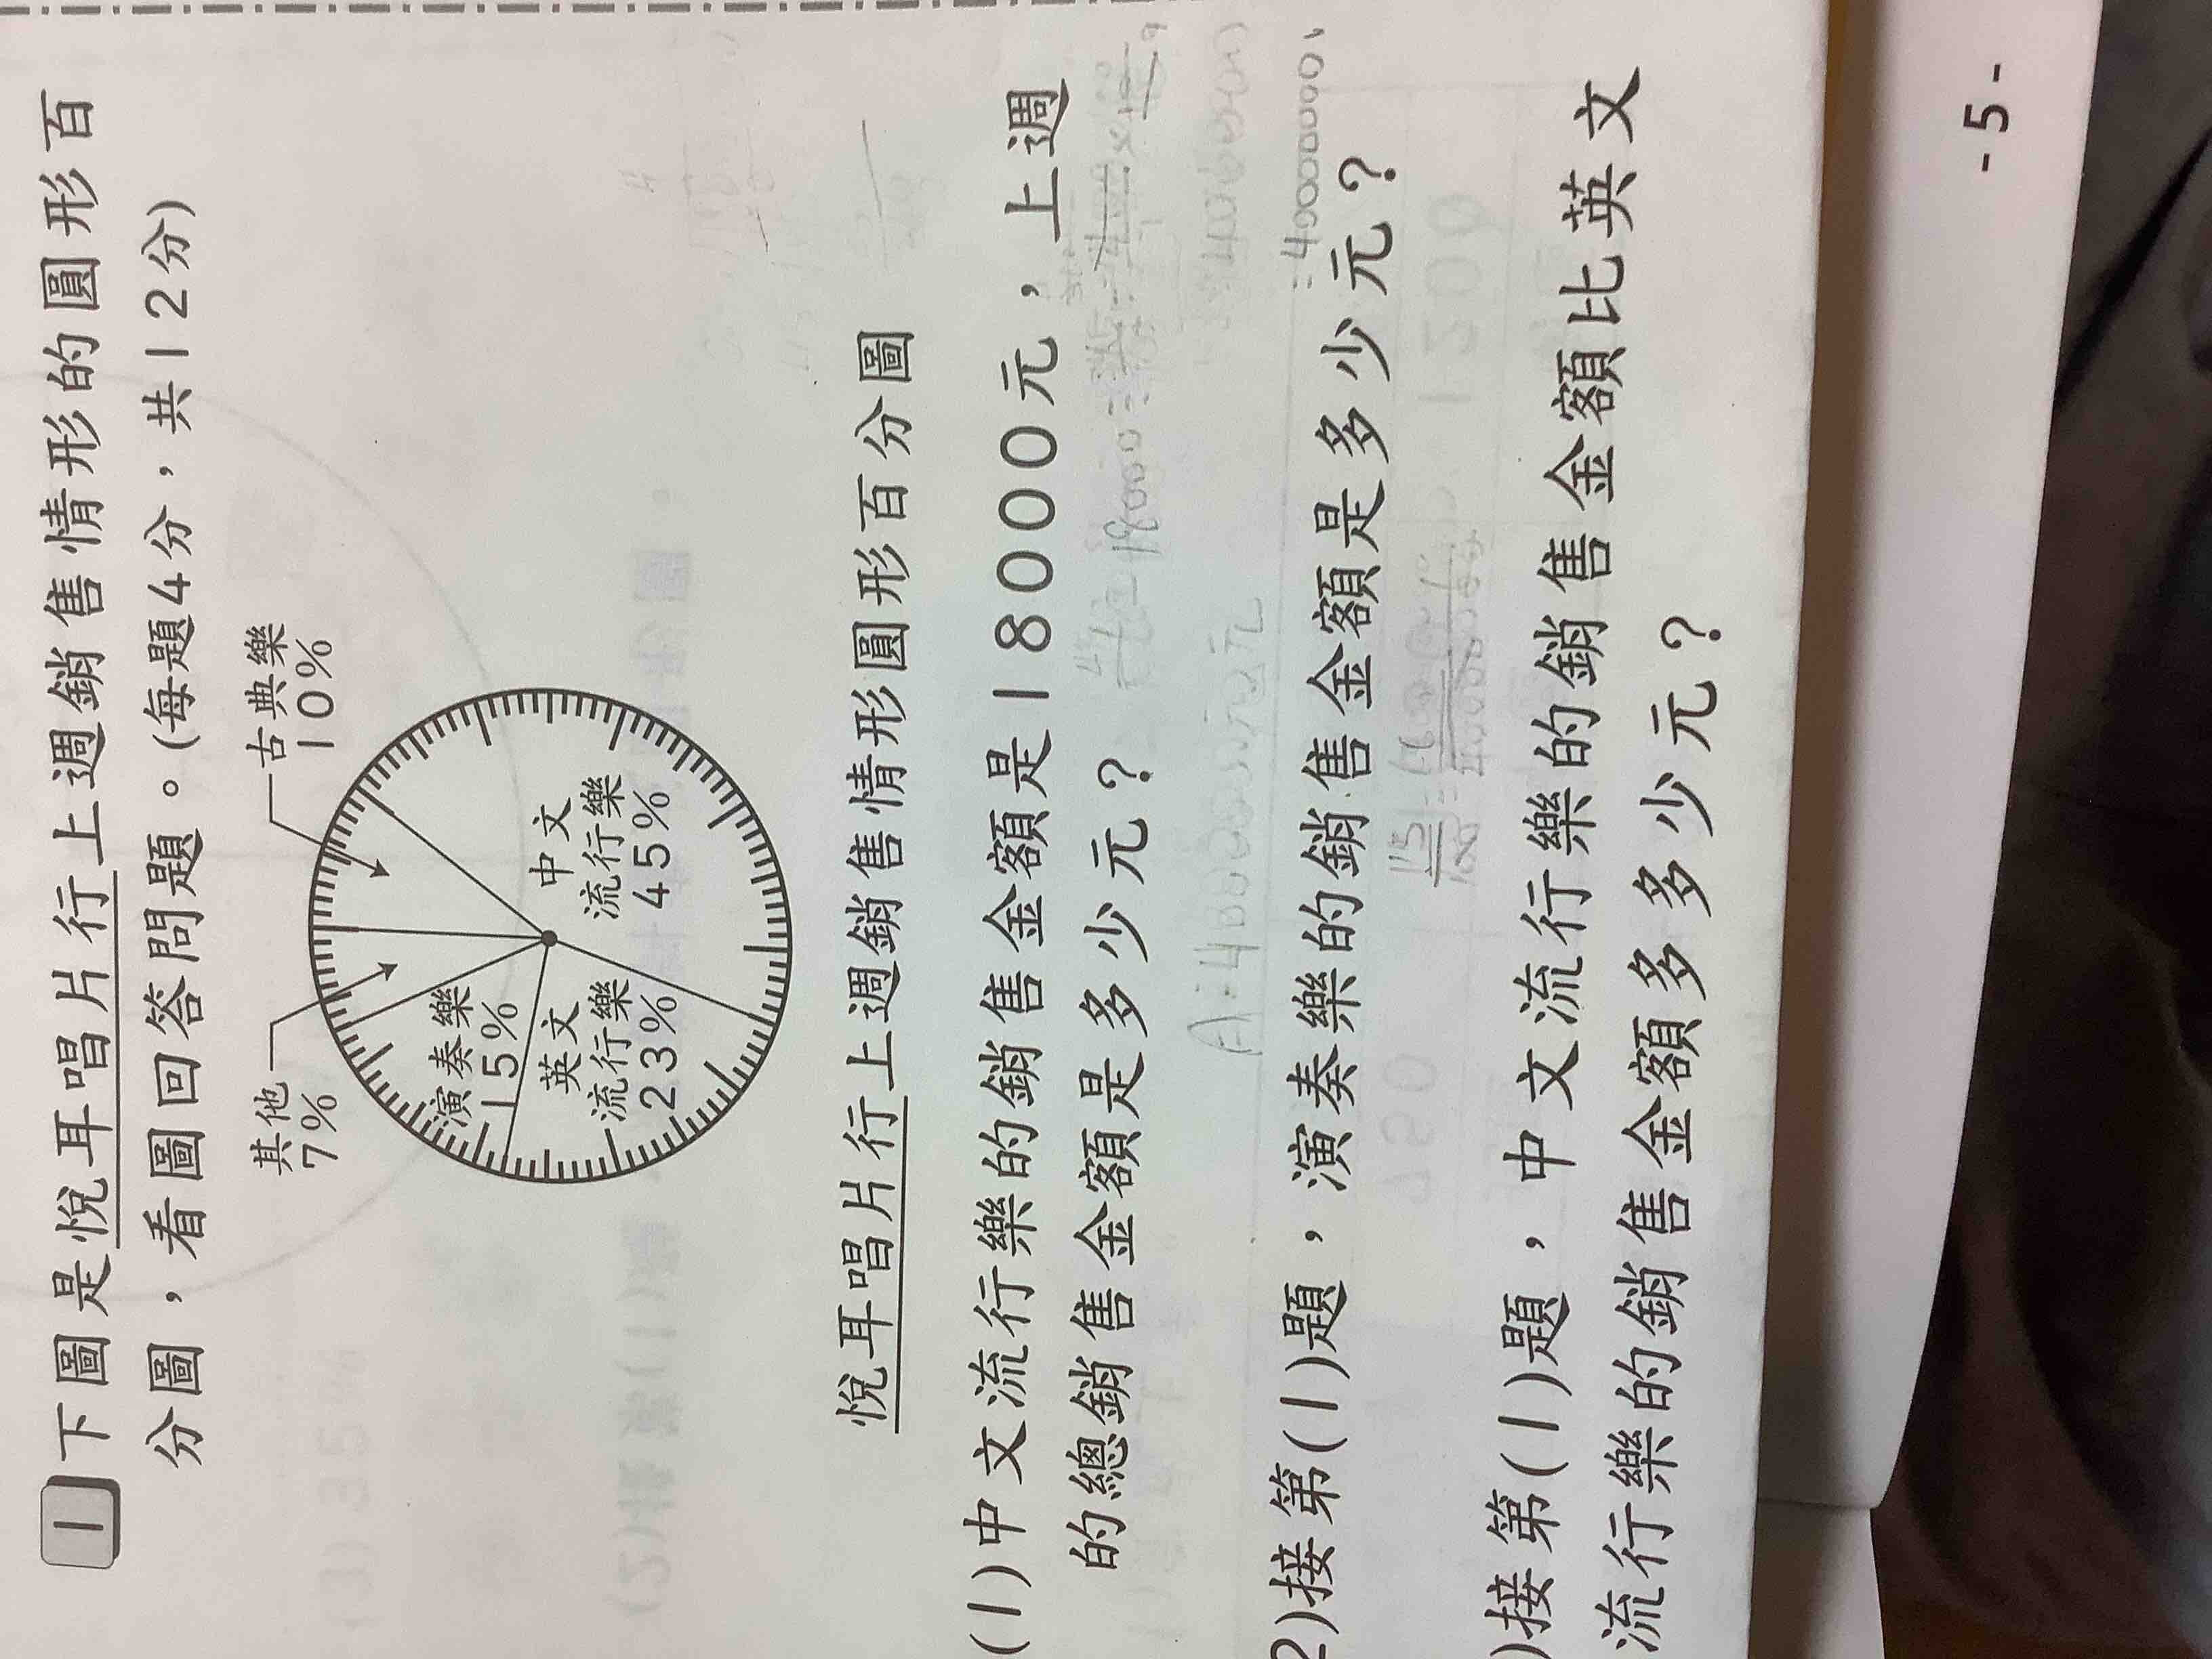 1 下圖是悅耳唱片行上週銷售情形的圓形百
分圖，看圖回答問題。(每題4分，共12分)
其他
7%
古典樂
10%
演奏樂
15%
英文
流行樂
23%
中文
流行樂
45%
悅耳唱片行上週銷售情形圓形百分圖
(1)中文流行樂的銷售金額是18000元，上週
的總銷售金額是多少元？
2)接第(1)題，演奏樂的銷售金額是多少元？
)接第(1)題，中文流行樂的銷售金額比英文
流行樂的銷售金額多多少元？
- 5 -